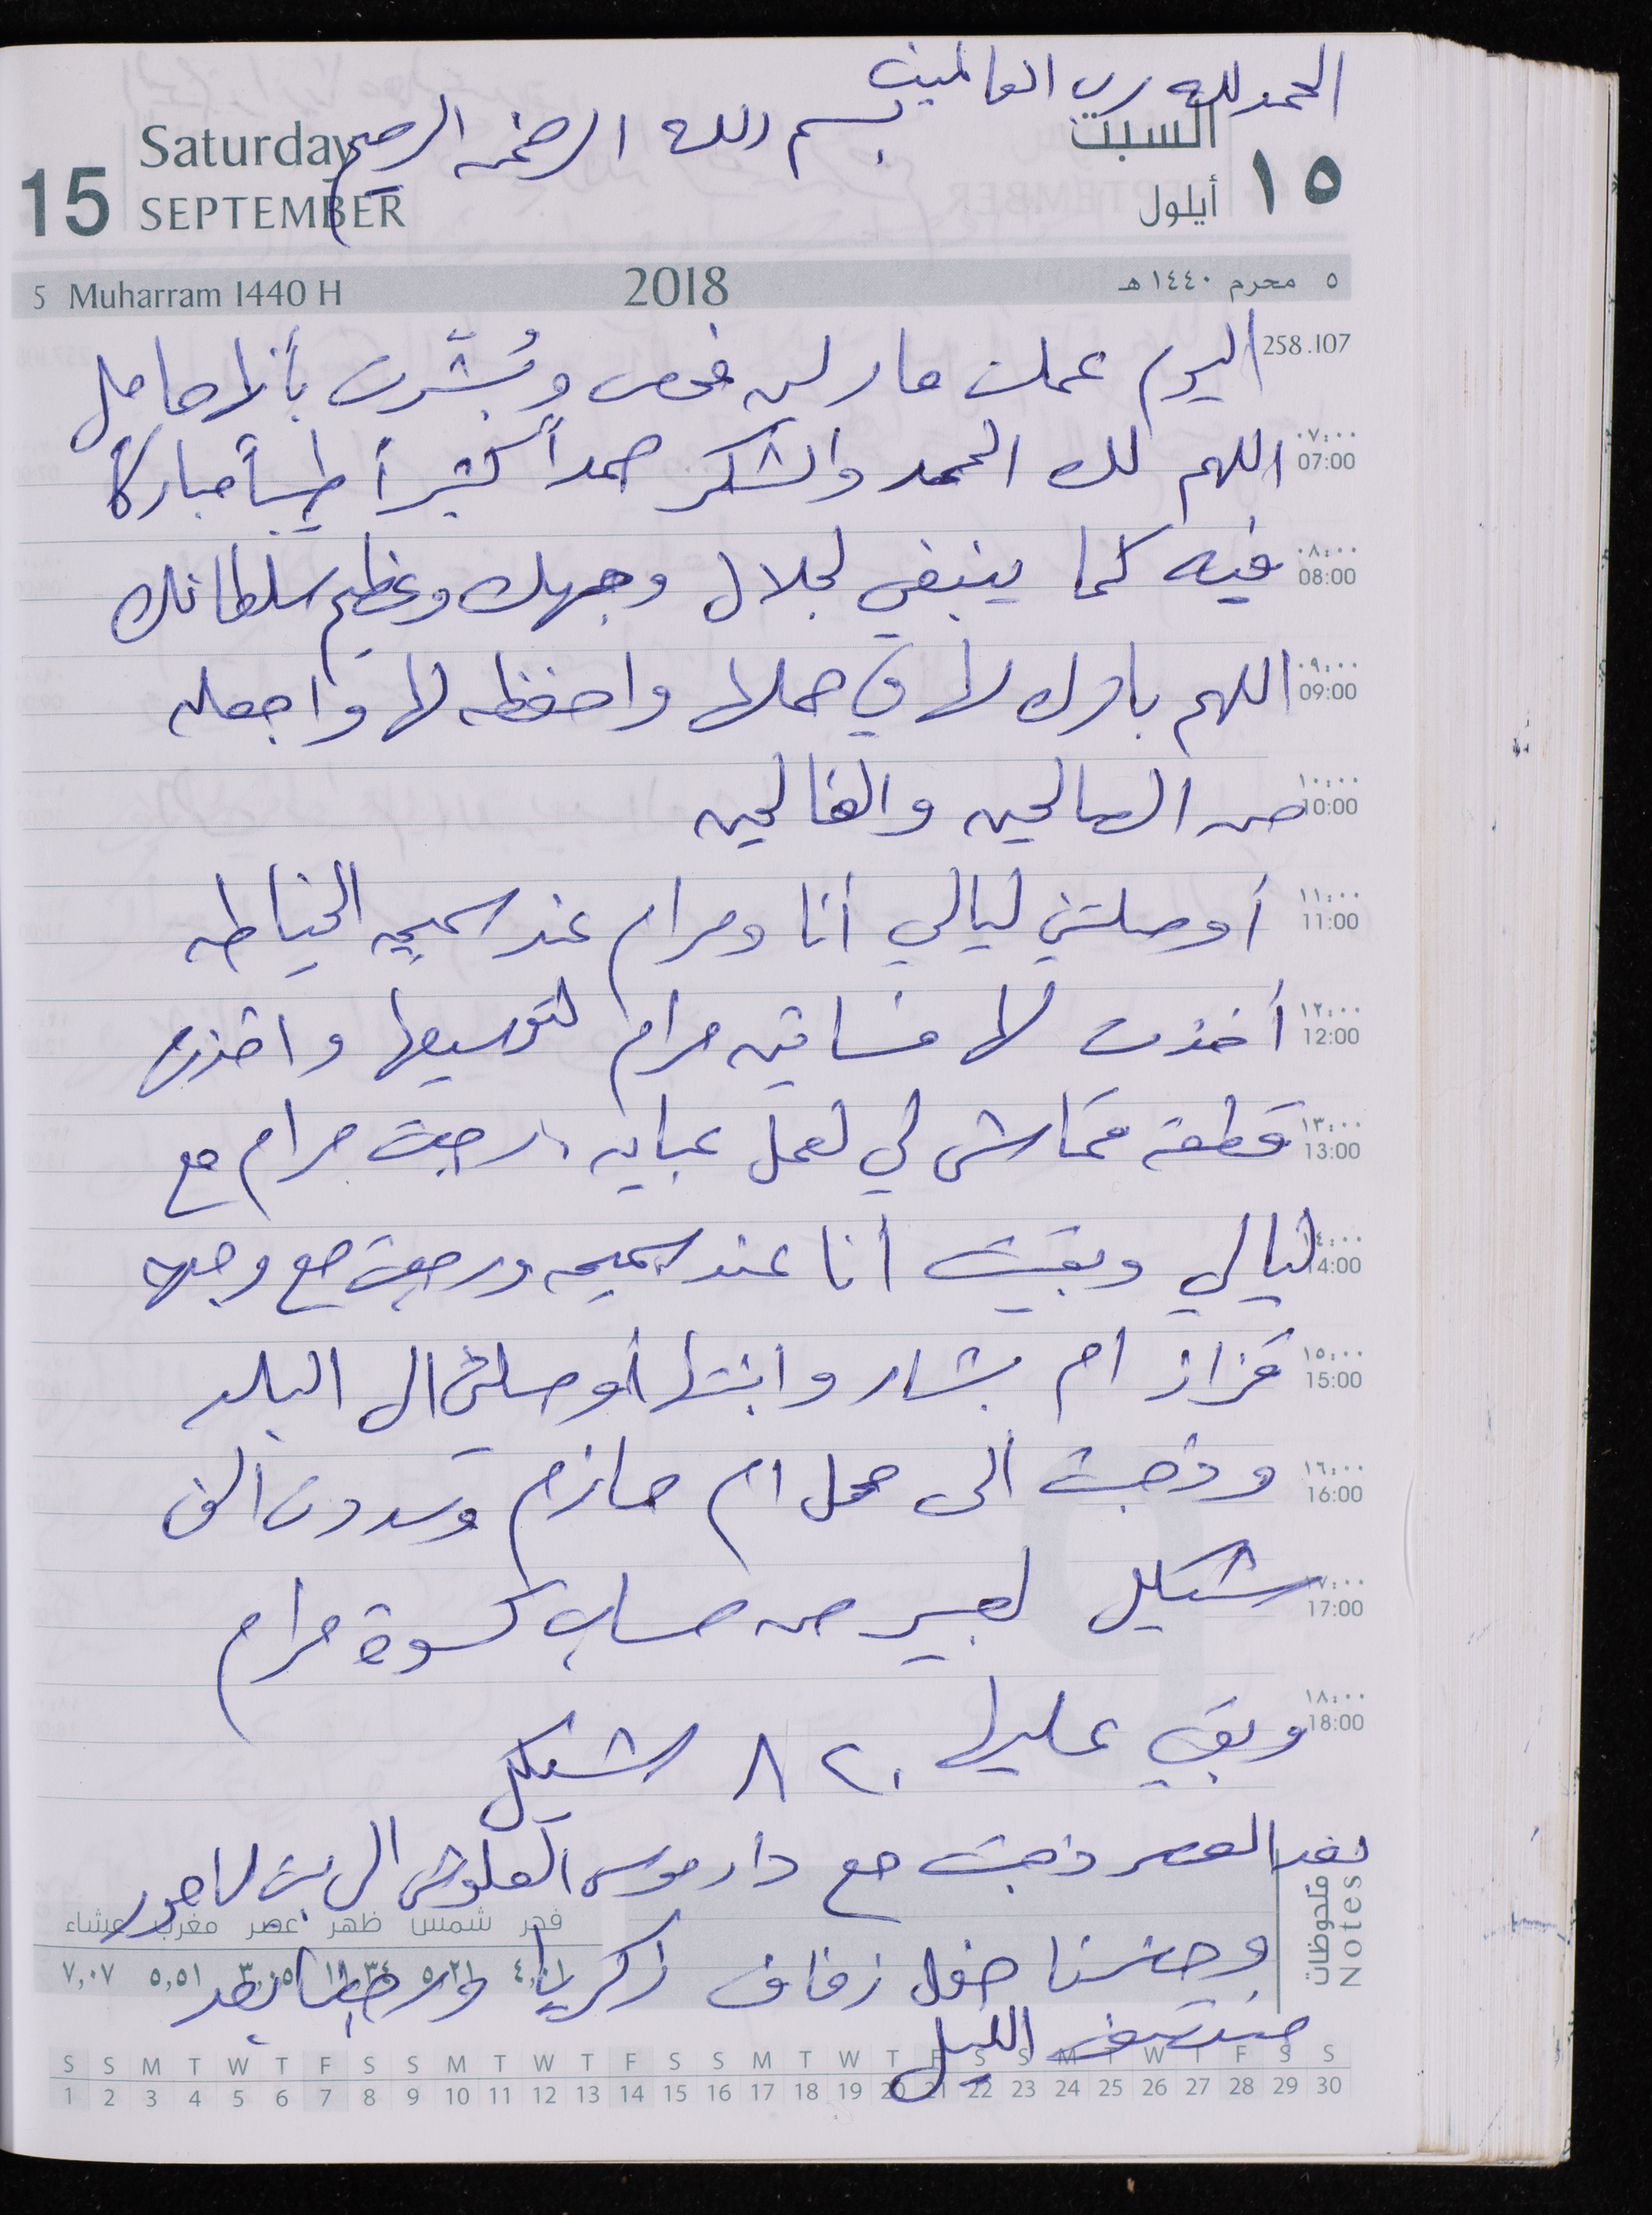 الحمد لله رب العالمين
بسم الله الرحمن الرحيم
Saturday
السبت
15
SEPTEMBER
أيلول
١٥
5 Muharram 1440 H
2018
٥ محرم ١٤٤٠ هـ
258.107
اليوم عملت مارلين فحص وبُشّرت بأنها حامل
٠٧:٠٠
07:00
اللهم لك الحمد والشكر حمداً كثيراً طيباً مباركاً
٠٨:٠٠
08:00
فيه كما ينبغي لجلال وجهك وعظيم سلطانك
٠٩:٠٠
09:00
اللهم بارك لها في حملها واحفظه لها واجعله
١٠:٠٠
10:00
من الصالحين والفالحين
١١:٠٠
11:00
أوصلتني ليالي أنا ومرام عند سميحه الخياطه
١٢:٠٠
12:00
أخذت لها فساتين مرام لتوسيعها واخذت
١٣:٠٠
13:00
قطعة قماش لي لعمل عبايه، رجعت مرام مع
١٤:٠٠
14:00
ليالي وبقيت أنا عند سميحه ورجعت مع وجيه
١٥:٠٠
15:00
قزاز ام بشار وابنتها أوصلتني الى البلد
١٦:٠٠
16:00
وذهبت الى محل ام حازم وسددت الف
١٧:٠٠
17:00
شيكل لعبير من حساب كسوة مرام
١٨:٠٠
18:00
وبقي عليها ٨٢٠ شيكل
بعد العصر ذهبت مع دار موسى العلوش الى بيت لاهور
ملحوظات
Notes
فجر شمس ظهر عصر مغرب عشاء
وحضرنا حفل زفاف زكريا ورجعنا بعد
٤,٠١ ٥,٢١ ١١,٣٤ ٣,٠٥ ٥,٥١ ٧,٠٧
منتصف الليل
S S M T W T F S S M T W T F S S M T W T F S S M T W T F S S
1 2 3 4 5 6 7 8 9 10 11 12 13 14 15 16 17 18 19 20 21 22 23 24 25 26 27 28 29 30